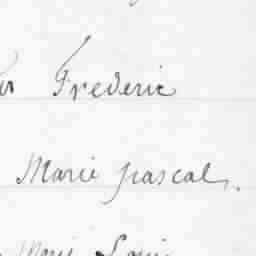 Frederic
Marie pascal,.
Marie Louis